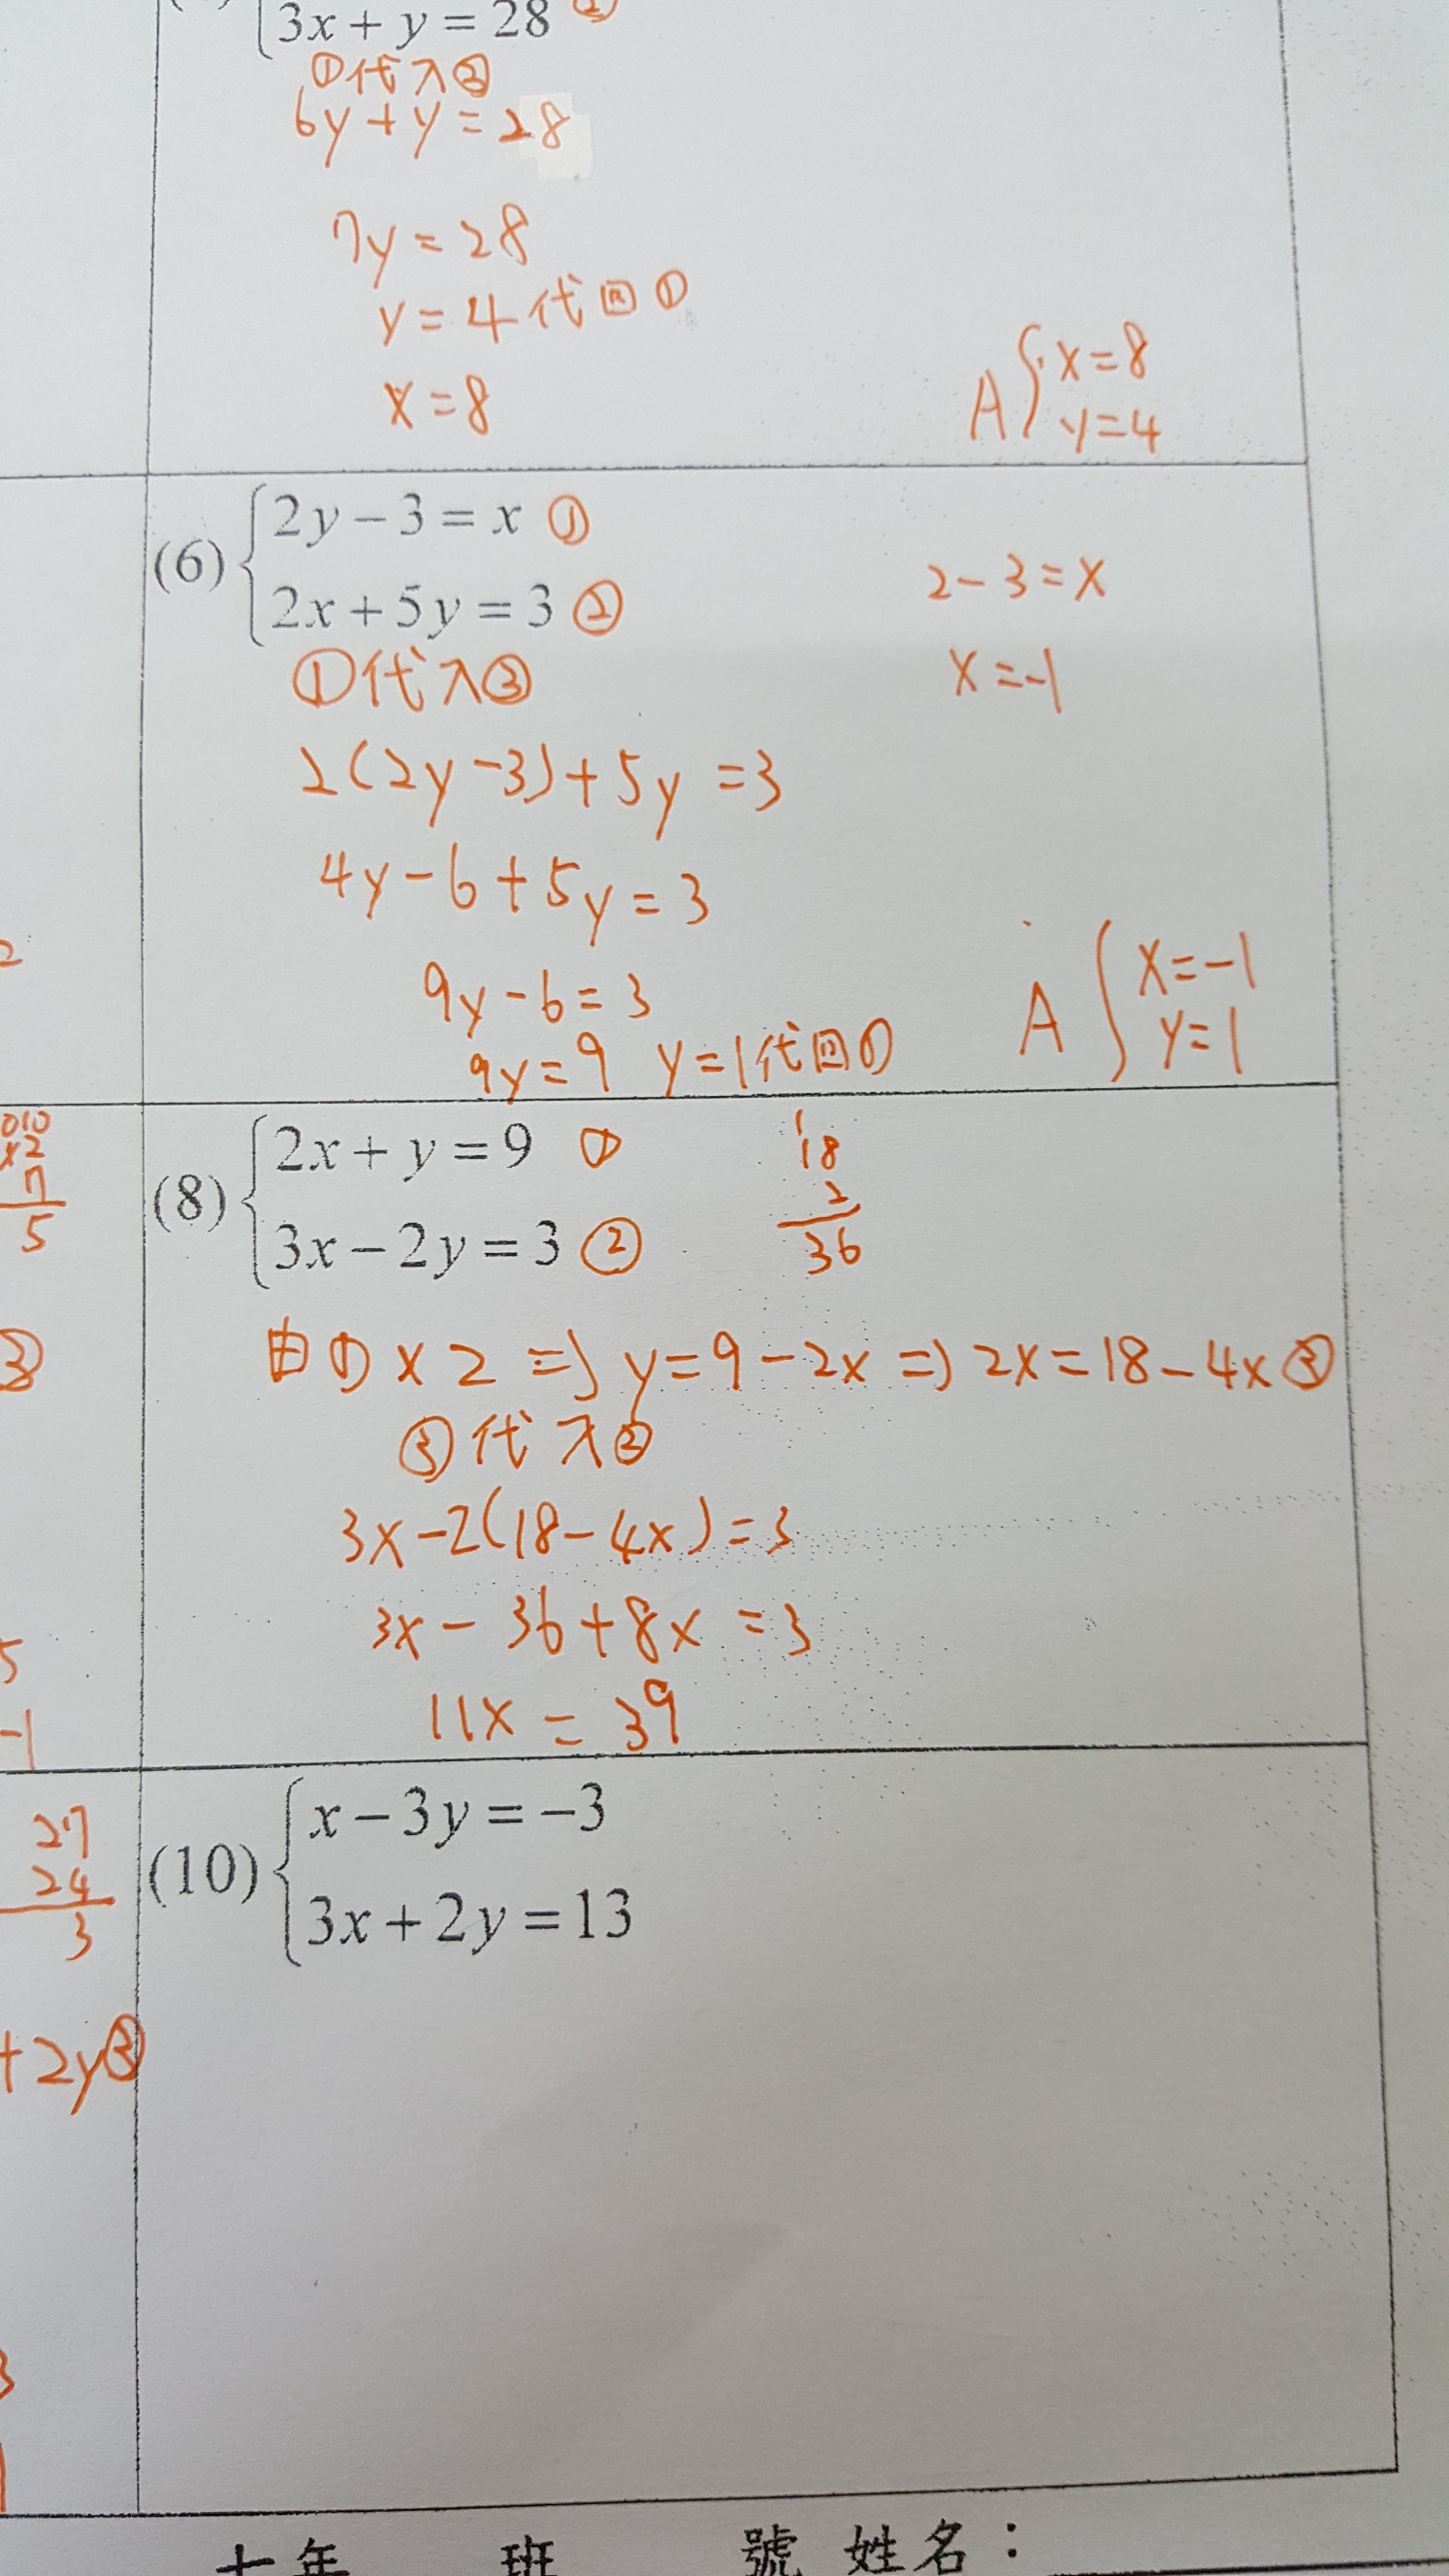 3x + y = 28 ②
①代入②
6y + y = 28
7y = 28
y = 4 代回①
x = 8
A { x = 8
y = 4
(6) { 2y − 3 = x ①
2x + 5y = 3 ②
2 − 3 = x
x = −1
①代入②
2(2y − 3) + 5y = 3
4y − 6 + 5y = 3
9y − 6 = 3
9y = 9 y = 1代回①
A { x = −1
y = 1
(8) { 2x + y = 9 ①
3x − 2y = 3 ②
18
2
36
由① × 2 ⇒ y = 9 − 2x ⇒ 2x = 18 − 4x ③
③代入②
3x − 2(18 − 4x) = 3
3x − 36 + 8x = 3
11x = 39
(10) { x − 3y = −3
3x + 2y = 13
2
x2
7
5
③
5
−1
27
24
3
+ 2y③
3
七年 班 號 姓名：